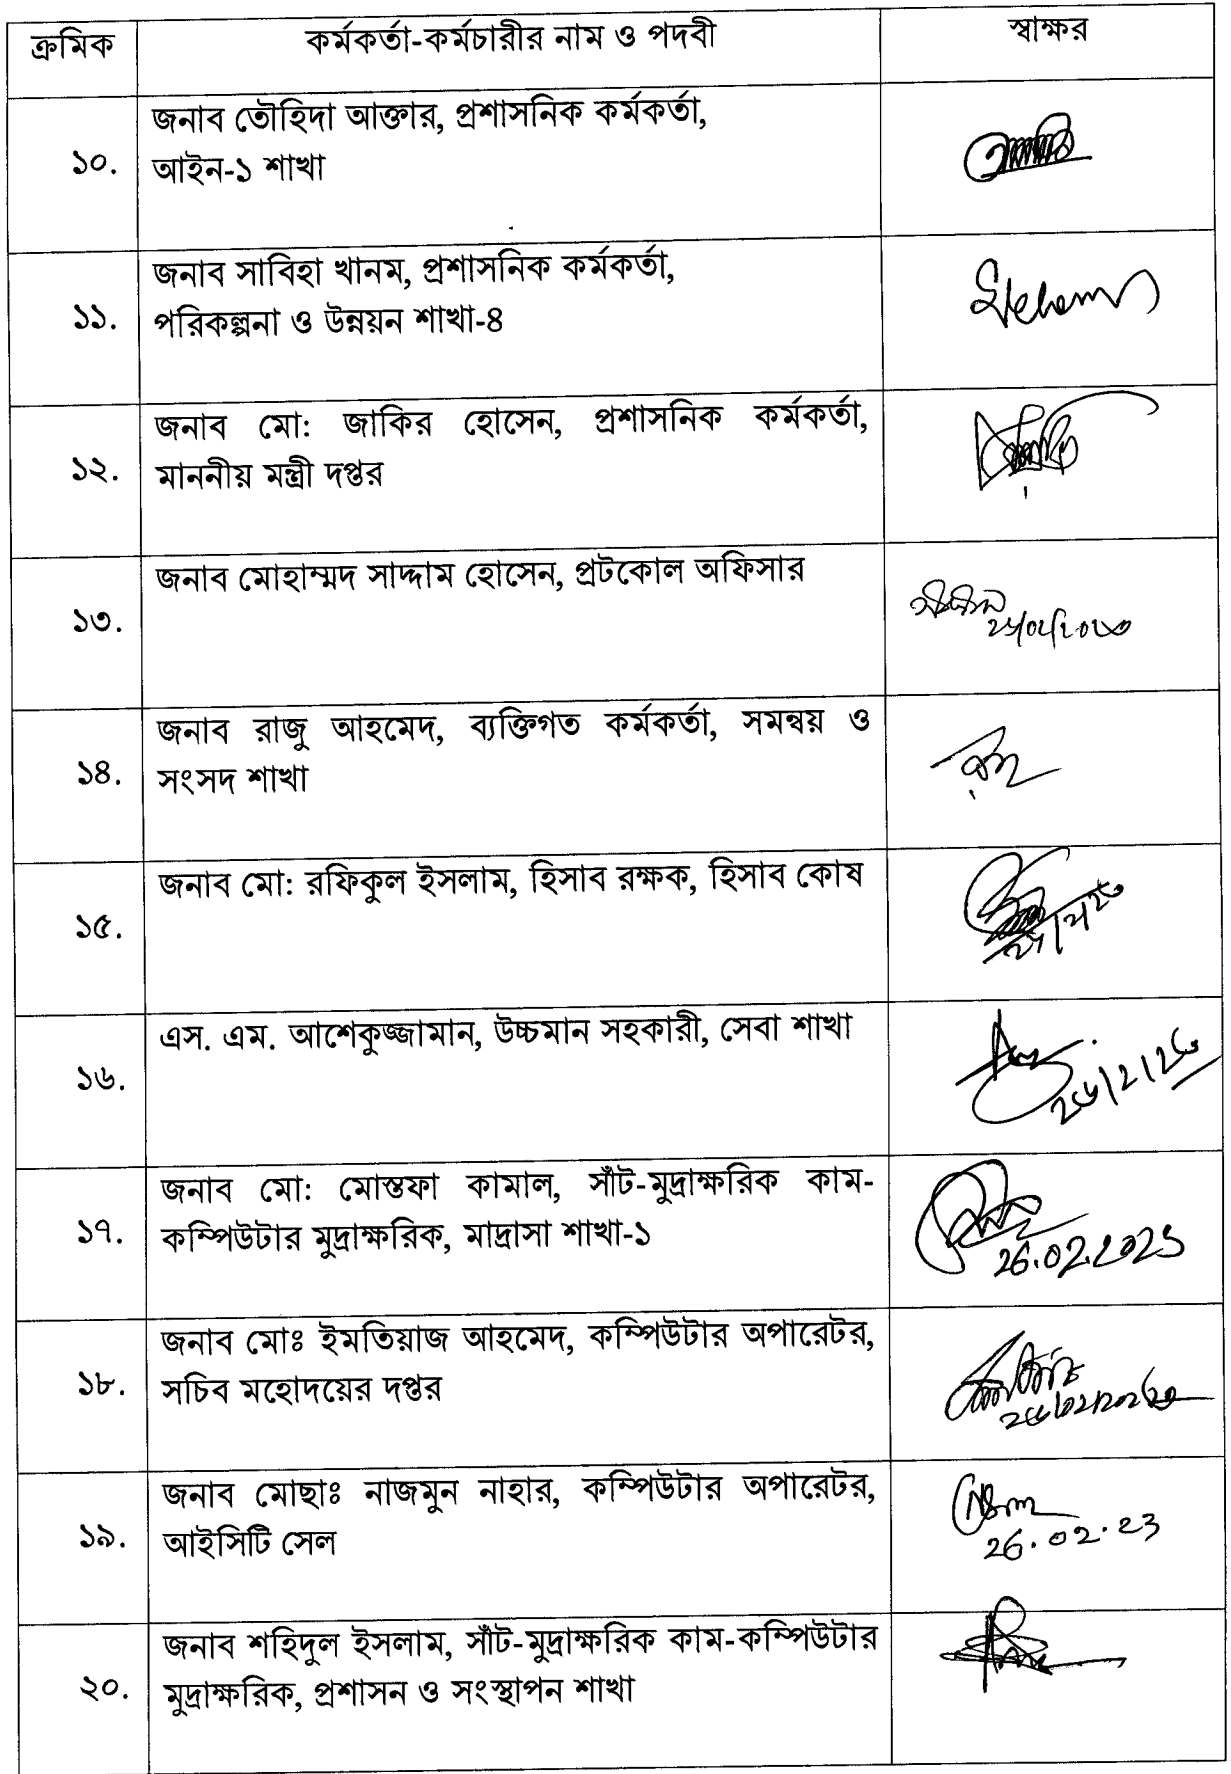 ক্রমিক কর্মকর্তা-কর্মচারীর নাম ও পদবী স্বাক্ষর
জনাব তৌহিদা আক্তার, প্রশাসনিক কর্মকর্তা,
১০. আইন-১ শাখা
জনাব সাবিহা খানম, প্রশাসনিক কর্মকর্তা,
১১. পরিকল্পনা ও উন্নয়ন শাখা-৪
জনাব মো: জাকির হোসেন, প্রশাসনিক কর্মকর্তা,
১২. মাননীয় মন্ত্রী দপ্তর
জনাব মোহাম্মদ সাদ্দাম হোসেন, প্রটকোল অফিসার
১৩.
জনাব রাজু আহমেদ, ব্যক্তিগত কর্মকর্তা, সমন্বয় ও
১৪. সংসদ শাখা
জনাব মো: রফিকুল ইসলাম, হিসাব রক্ষক, হিসাব কোষ
১৫.
এস. এম. আশেকুজ্জামান, উচ্চমান সহকারী, সেবা শাখা
১৬.
জনাব মো: মোস্তফা কামাল, সাঁট-মুদ্রাক্ষরিক কাম-
১৭. কম্পিউটার মুদ্রাক্ষরিক, মাদ্রাসা শাখা-১
26.02.2023
জনাব মোঃ ইমতিয়াজ আহমেদ, কম্পিউটার অপারেটর,
১৮. সচিব মহোদয়ের দপ্তর
জনাব মোছাঃ নাজমুন নাহার, কম্পিউটার অপারেটর,
১৯. আইসিটি সেল
26.02.23
জনাব শহিদুল ইসলাম, সাঁট-মুদ্রাক্ষরিক কাম-কম্পিউটার
২০. মুদ্রাক্ষরিক, প্রশাসন ও সংস্থাপন শাখা